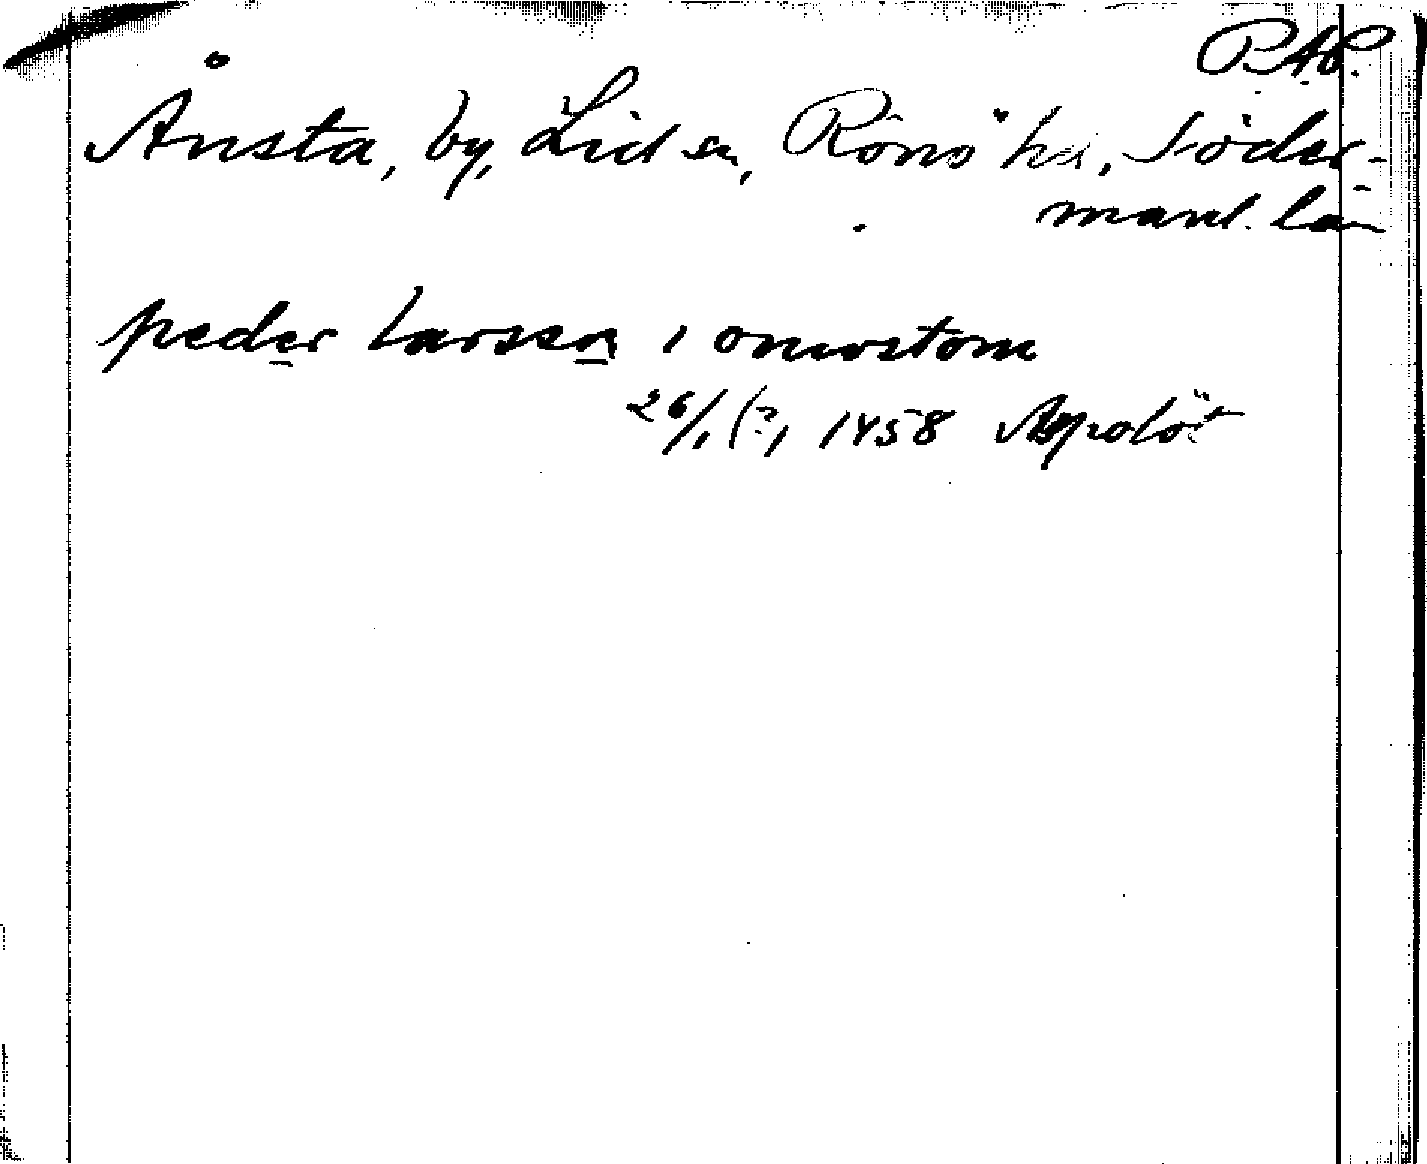 P.A.
Ånsta, by, Lid sn, Rönö hd, Söder-
manl. län
peder larsson i onwstom
26/1 (?) 1458 Aspolöt